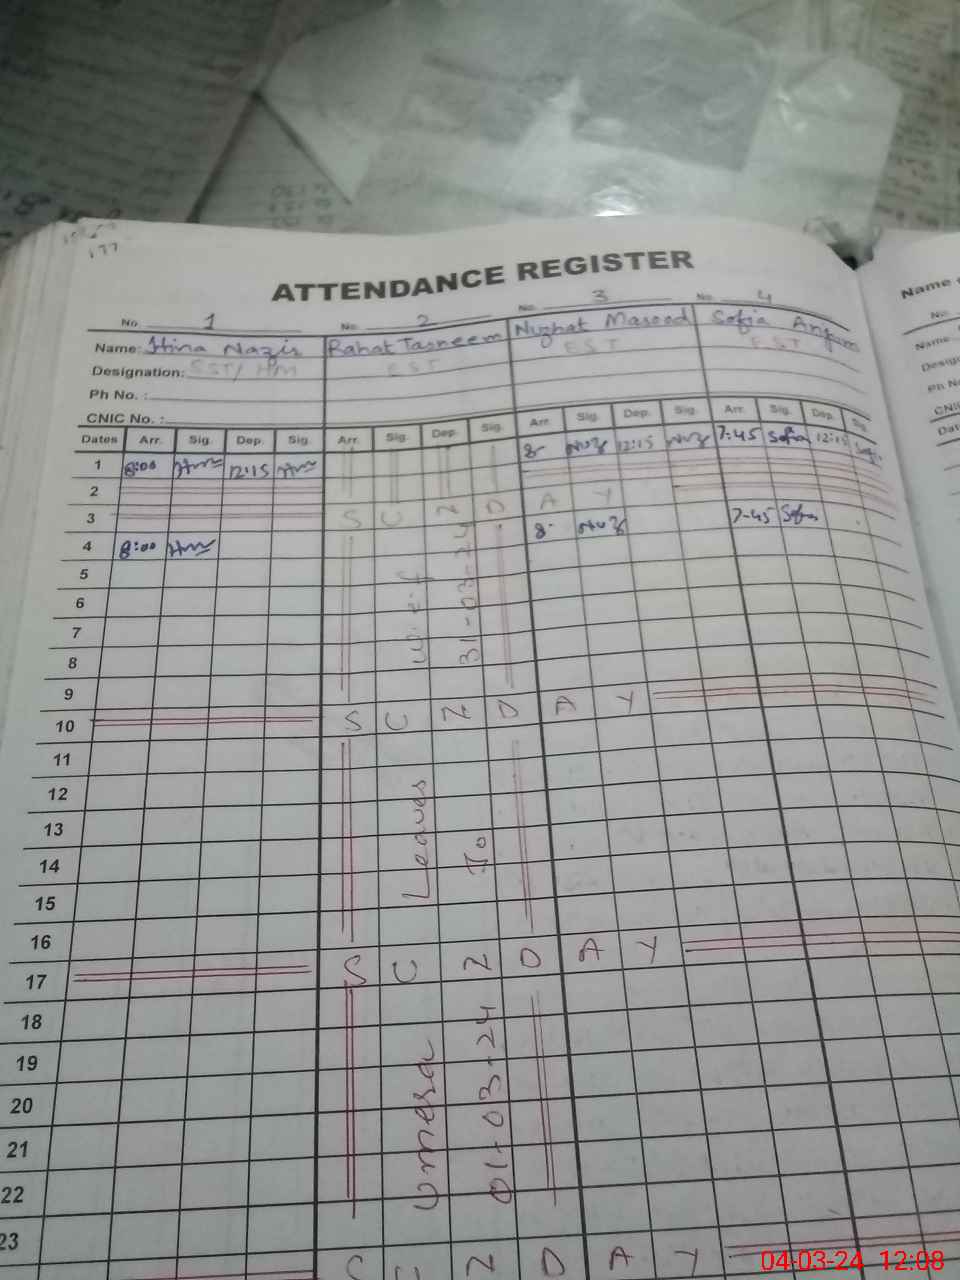 177
ATTENDANCE REGISTER
No. 1 No. 2 No. 3 No. 4
Name: Hina Nazir Rahat Tasneem Nuzhat Masood Sofia Anjum
Designation: SST/HM EST EST EST
Ph No. :
CNIC No. :
Dates Arr. Sig. Dep. Sig. Arr. Sig. Dep. Sig. Arr. Sig. Dep. Sig. Arr. Sig. Dep. Sig.
1 8:00 12:15 8- Nuz 12:15 Nuz 7:45 Sofia 12:15
2
3 SUNDAY
4 8:00 8- Nuz 7-45 Sofia
5
6
7
8
9
10 SUNDAY
11
12
13
14
15
16
17 SUNDAY
18
19
20
21
22
23
SUNDAY
Leaves
w.e.f
01-03-24
To
31-03-24
Name
No.
Name
Desig
Ph N
CNI
Dat
04-03-24 12:08